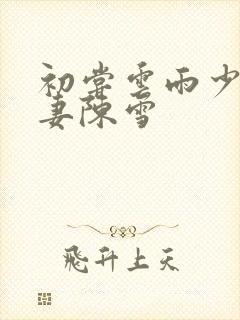 初嘗雲雨少
妻陳雪
飛升上天